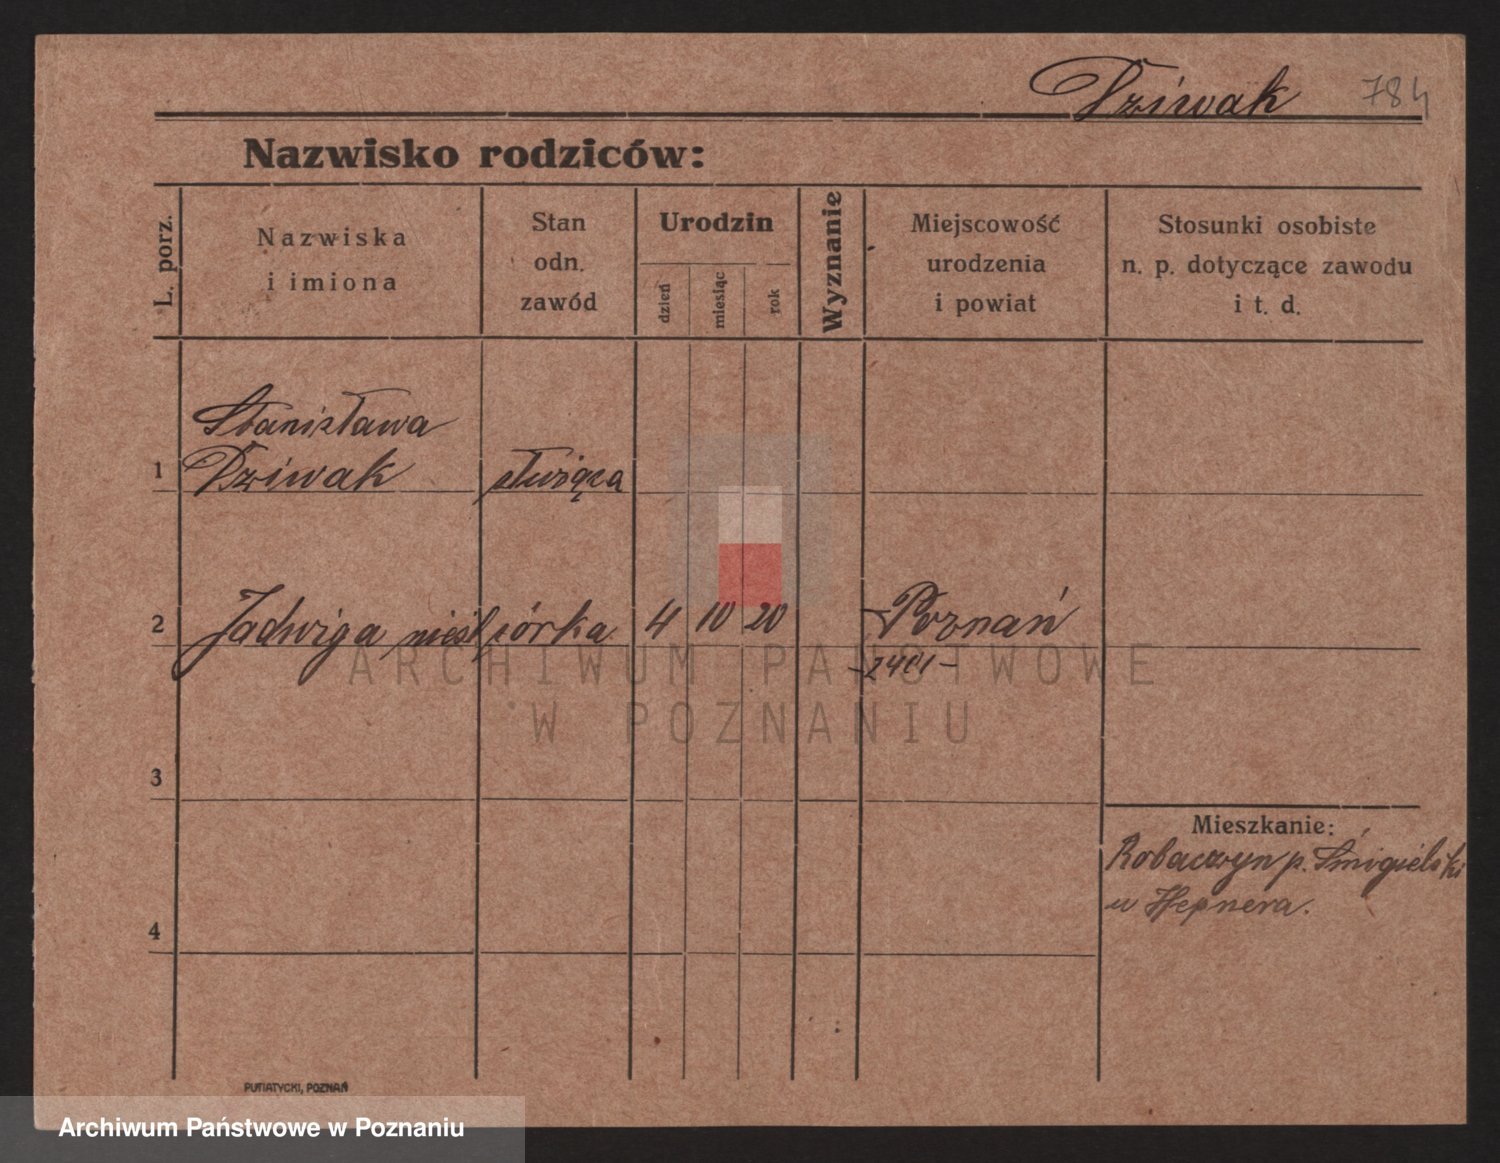 Dziwak 784
Nazwisko rodziców:
L. porz.
Nazwiska
i imiona
Stan
odn.
zawód
Urodzin
dzień
miesiąc
rok
Wyznanie
Miejscowość
urodzenia
i powiat
Stosunki osobiste
n. p. dotyczące zawodu
i t. d.
Stanisława
1 Dziwak służąca
2 Jadwiga nieśl córka 4 10 20 Poznań
ARCHIWUM PAŃSTWOWE
W POZNANIU
3
Mieszkanie:
Robaczyn p. Śmigielski
u Hepnera.
4
PUTIATYCKI, POZNAŃ
Archiwum Państwowe w Poznaniu